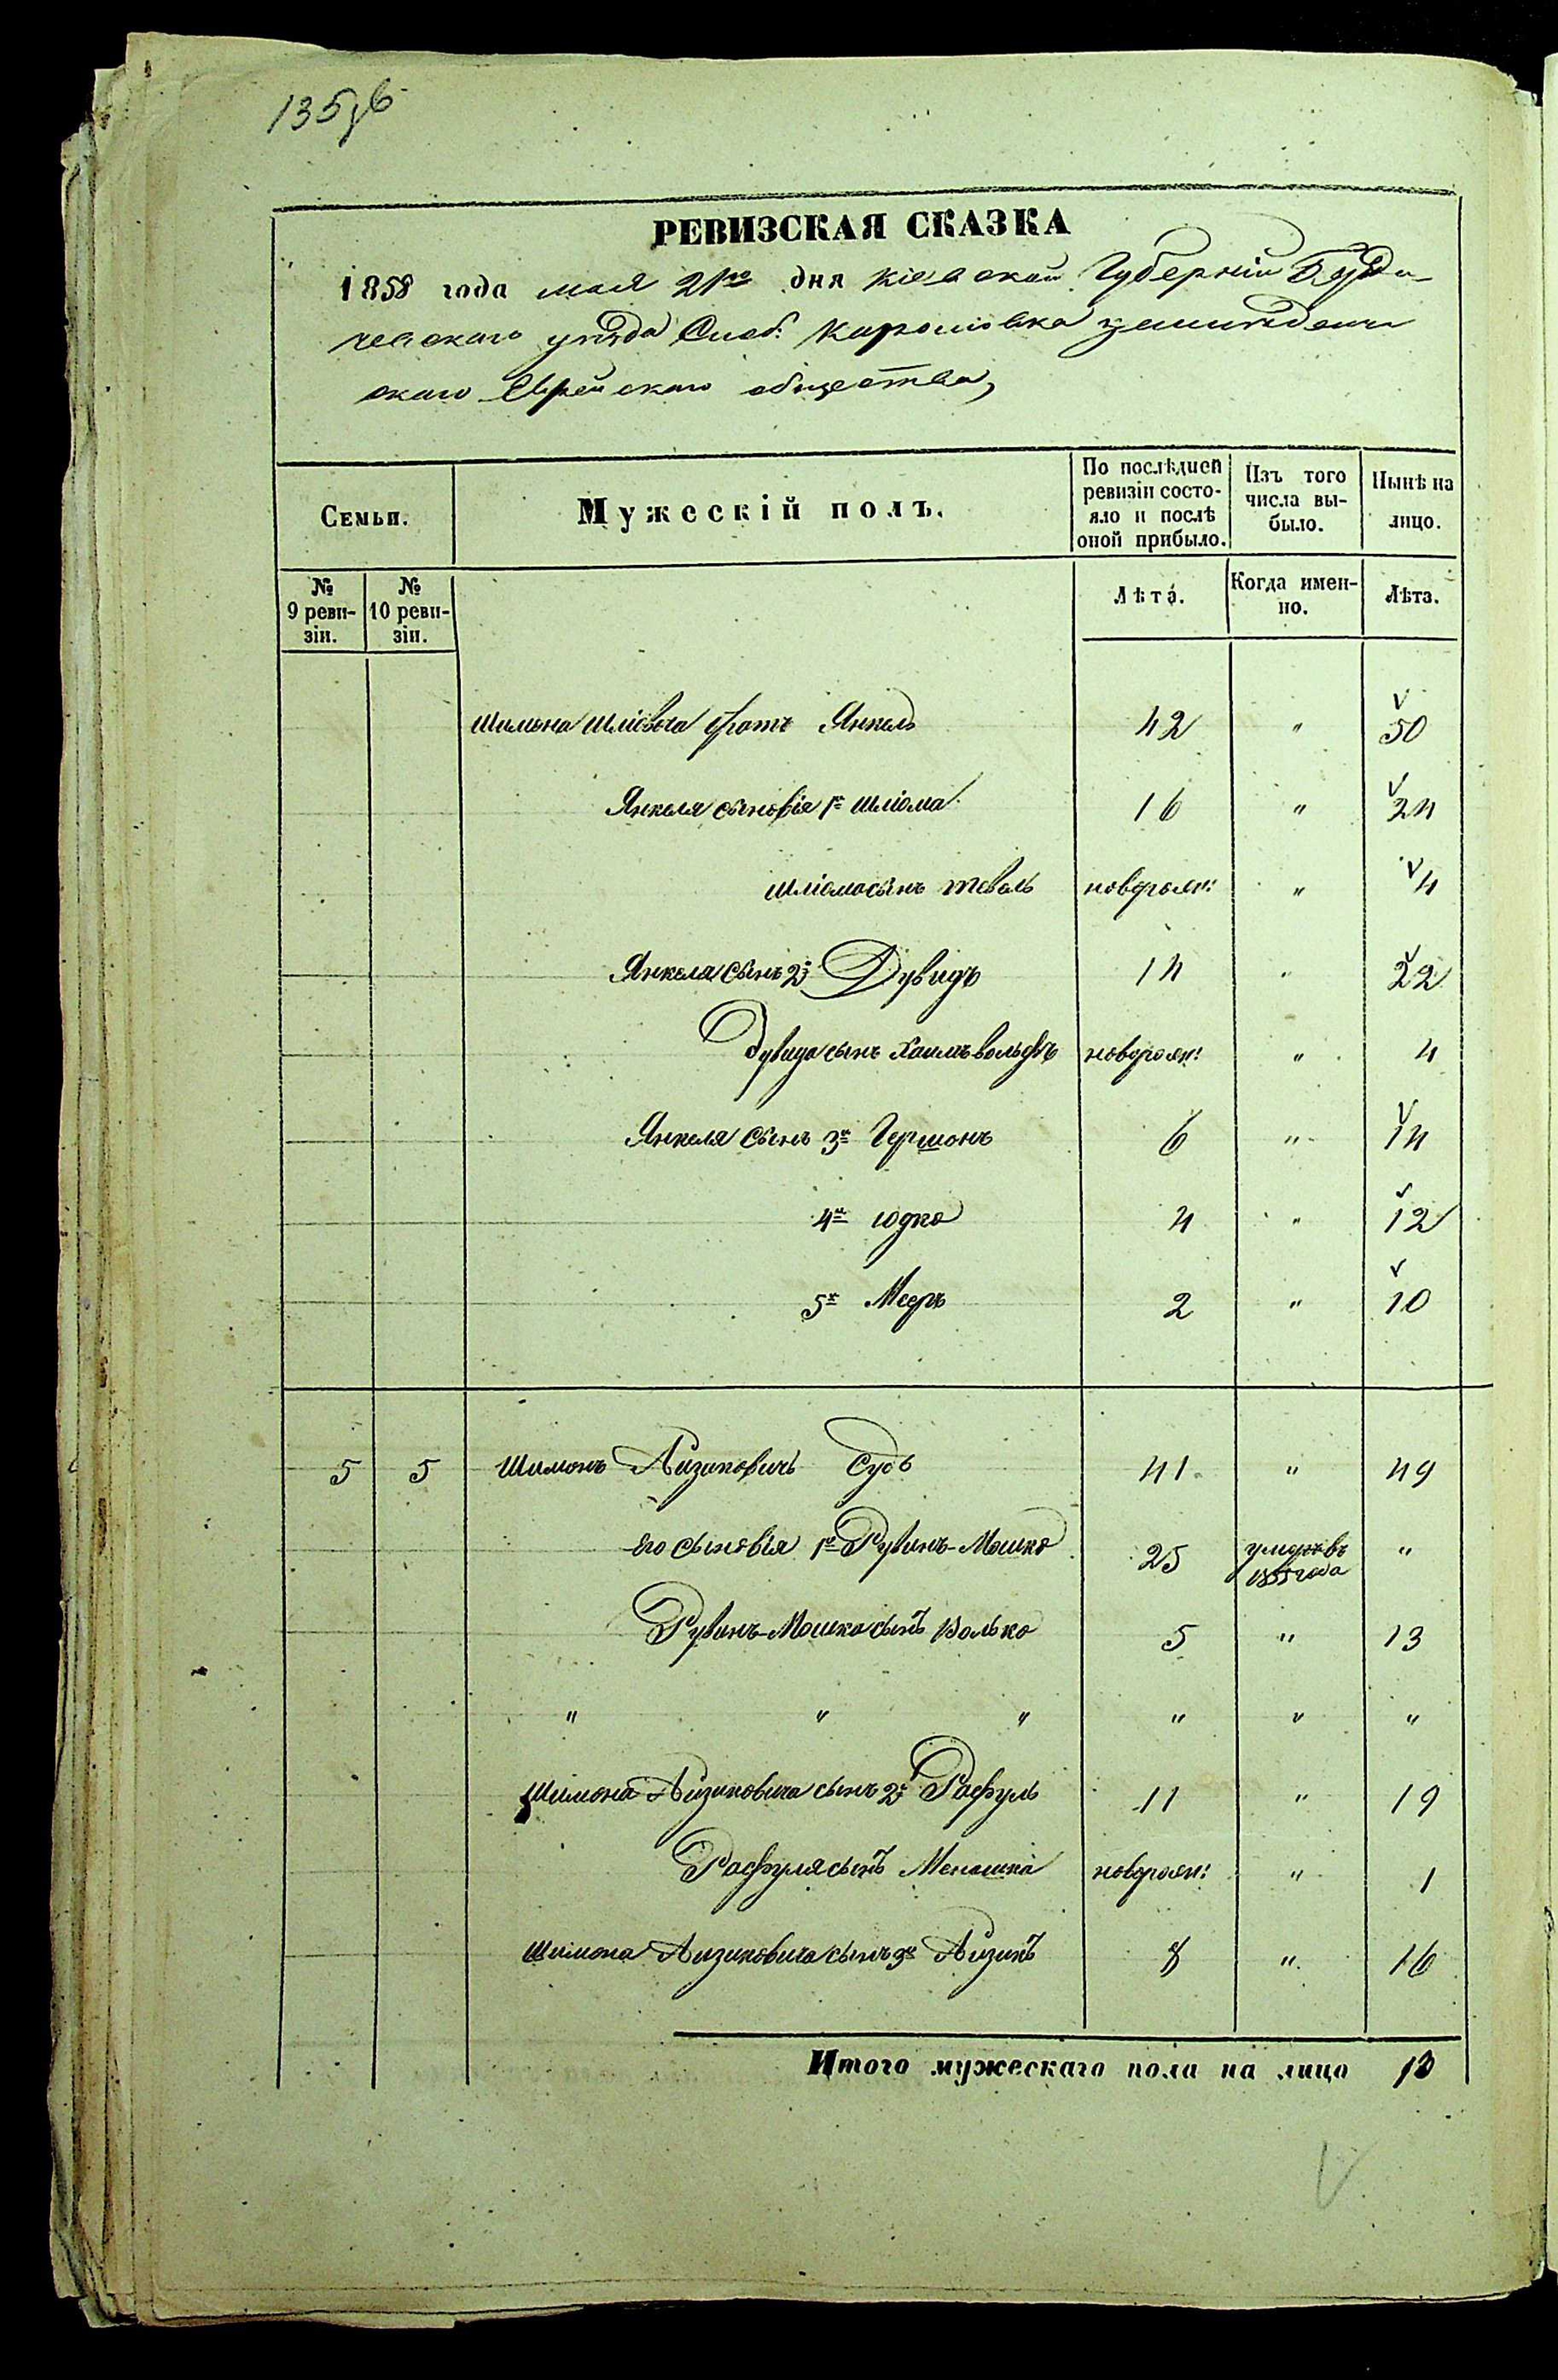 135
РЕВИЗСКАЯ СКАЗКА
1858 года мая 21го дня Кіевской Губерніи Берди-
чевскаго уѣзда Слоб:
скаго Еврейскаго общества,
Семьи.
Мужескій полъ.
По послѣдней ревизіи состо-яло и послѣ оной прибыло.
Изъ того числа вы-было.
Нынѣ на лицо.
№ 9 реви-зіи.
№ 10 реви-зіи.
Лѣта.
Когда имен-но.
Лѣта.
Шимона Шліовича братъ Янкель 42 " 50
Янкеля сыновія 1й Шліома 16 " 24
Шліома сынъ Тевель новорожд: " 4
Янкеля сынъ 2й Дувидъ 14 " 22
Дувида сынъ Хаимъ Вольфъ новорожд: " 4
Янкеля сынъ 3й Гершонъ 6 " 14
4й Юдко 4 " 12
5й Мееръ 2 " 10
5 5 Шимонъ Айзиковичъ Сусь 41 " 49
его сыновія 1й Рувинъ-Мошко 25 умеръ въ 1855 года "
Рувинъ-Мошка сынъ Волько 5 " 13
" " " " " "
Шимона Айзиковича сынъ 2й Рафуль 11 " 19
Рафуля сынъ Менашка новорожд: " 1
Шимона Айзиковича сынъ 3й Айзикъ 8 " 16
Итого мужескаго пола на лицо 13